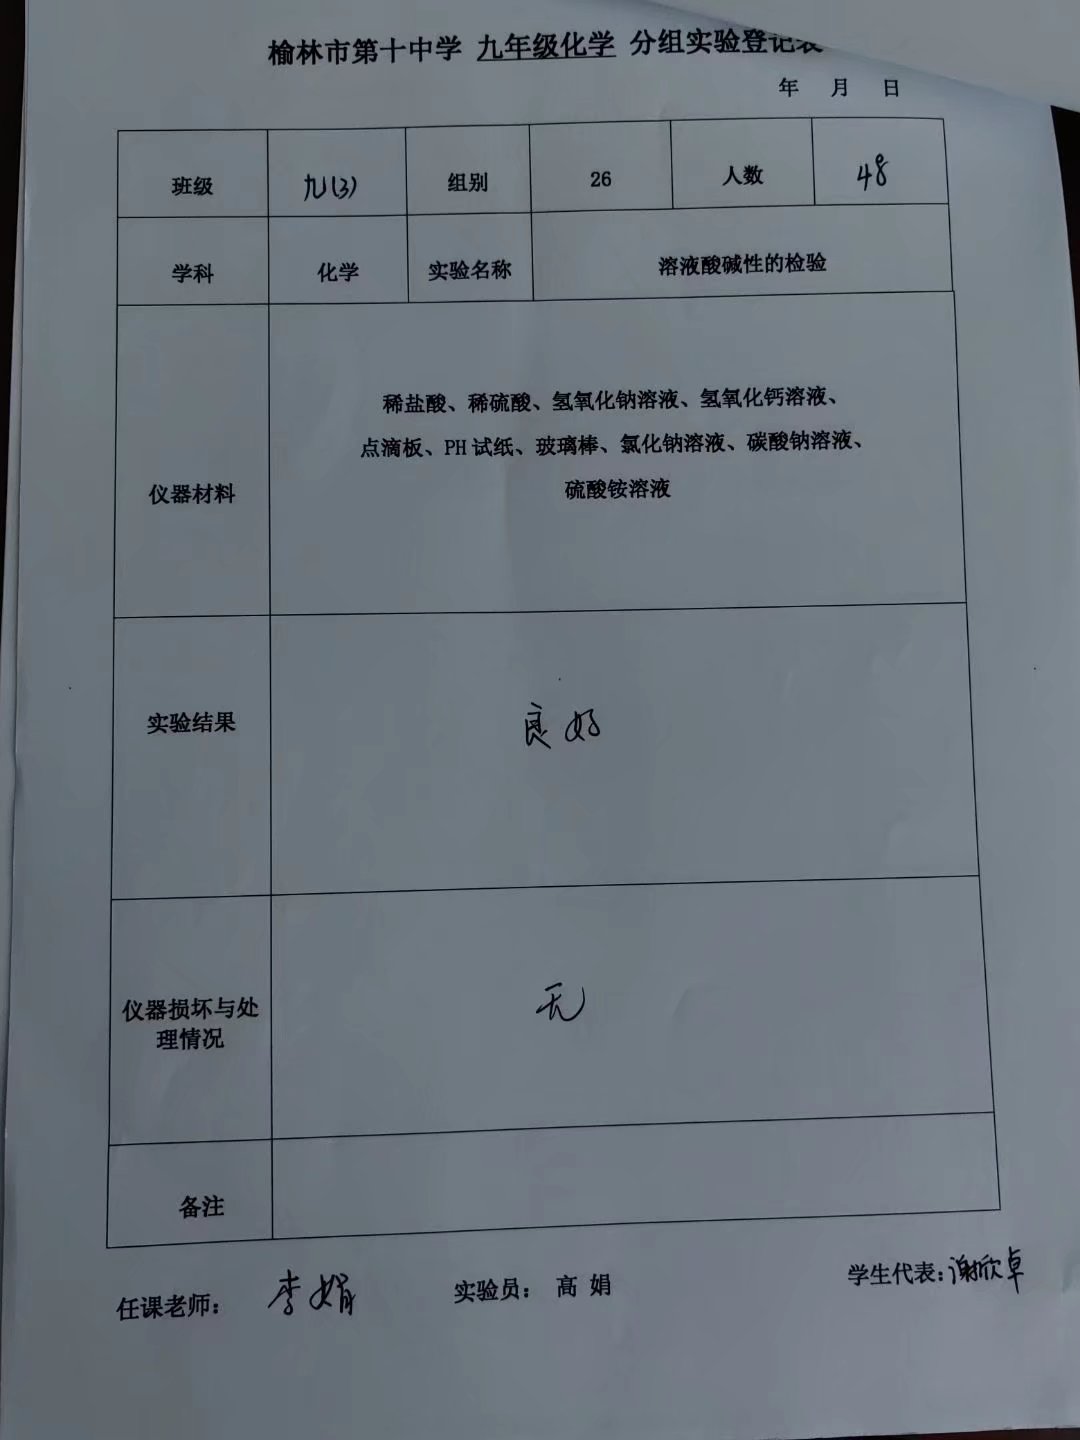 榆林市第十中学 九年级化学 分组实验登记表
年 月 日
班级 九(3) 组别 26 人数 48
学科 化学 实验名称 溶液酸碱性的检验
稀盐酸、稀硫酸、氢氧化钠溶液、氢氧化钙溶液、
点滴板、PH试纸、玻璃棒、氯化钠溶液、碳酸钠溶液、
仪器材料
硫酸铵溶液
实验结果 良好
仪器损坏与处
理情况
无
备注
任课老师： 李娟 实验员： 高娟 学生代表：谢欣卓